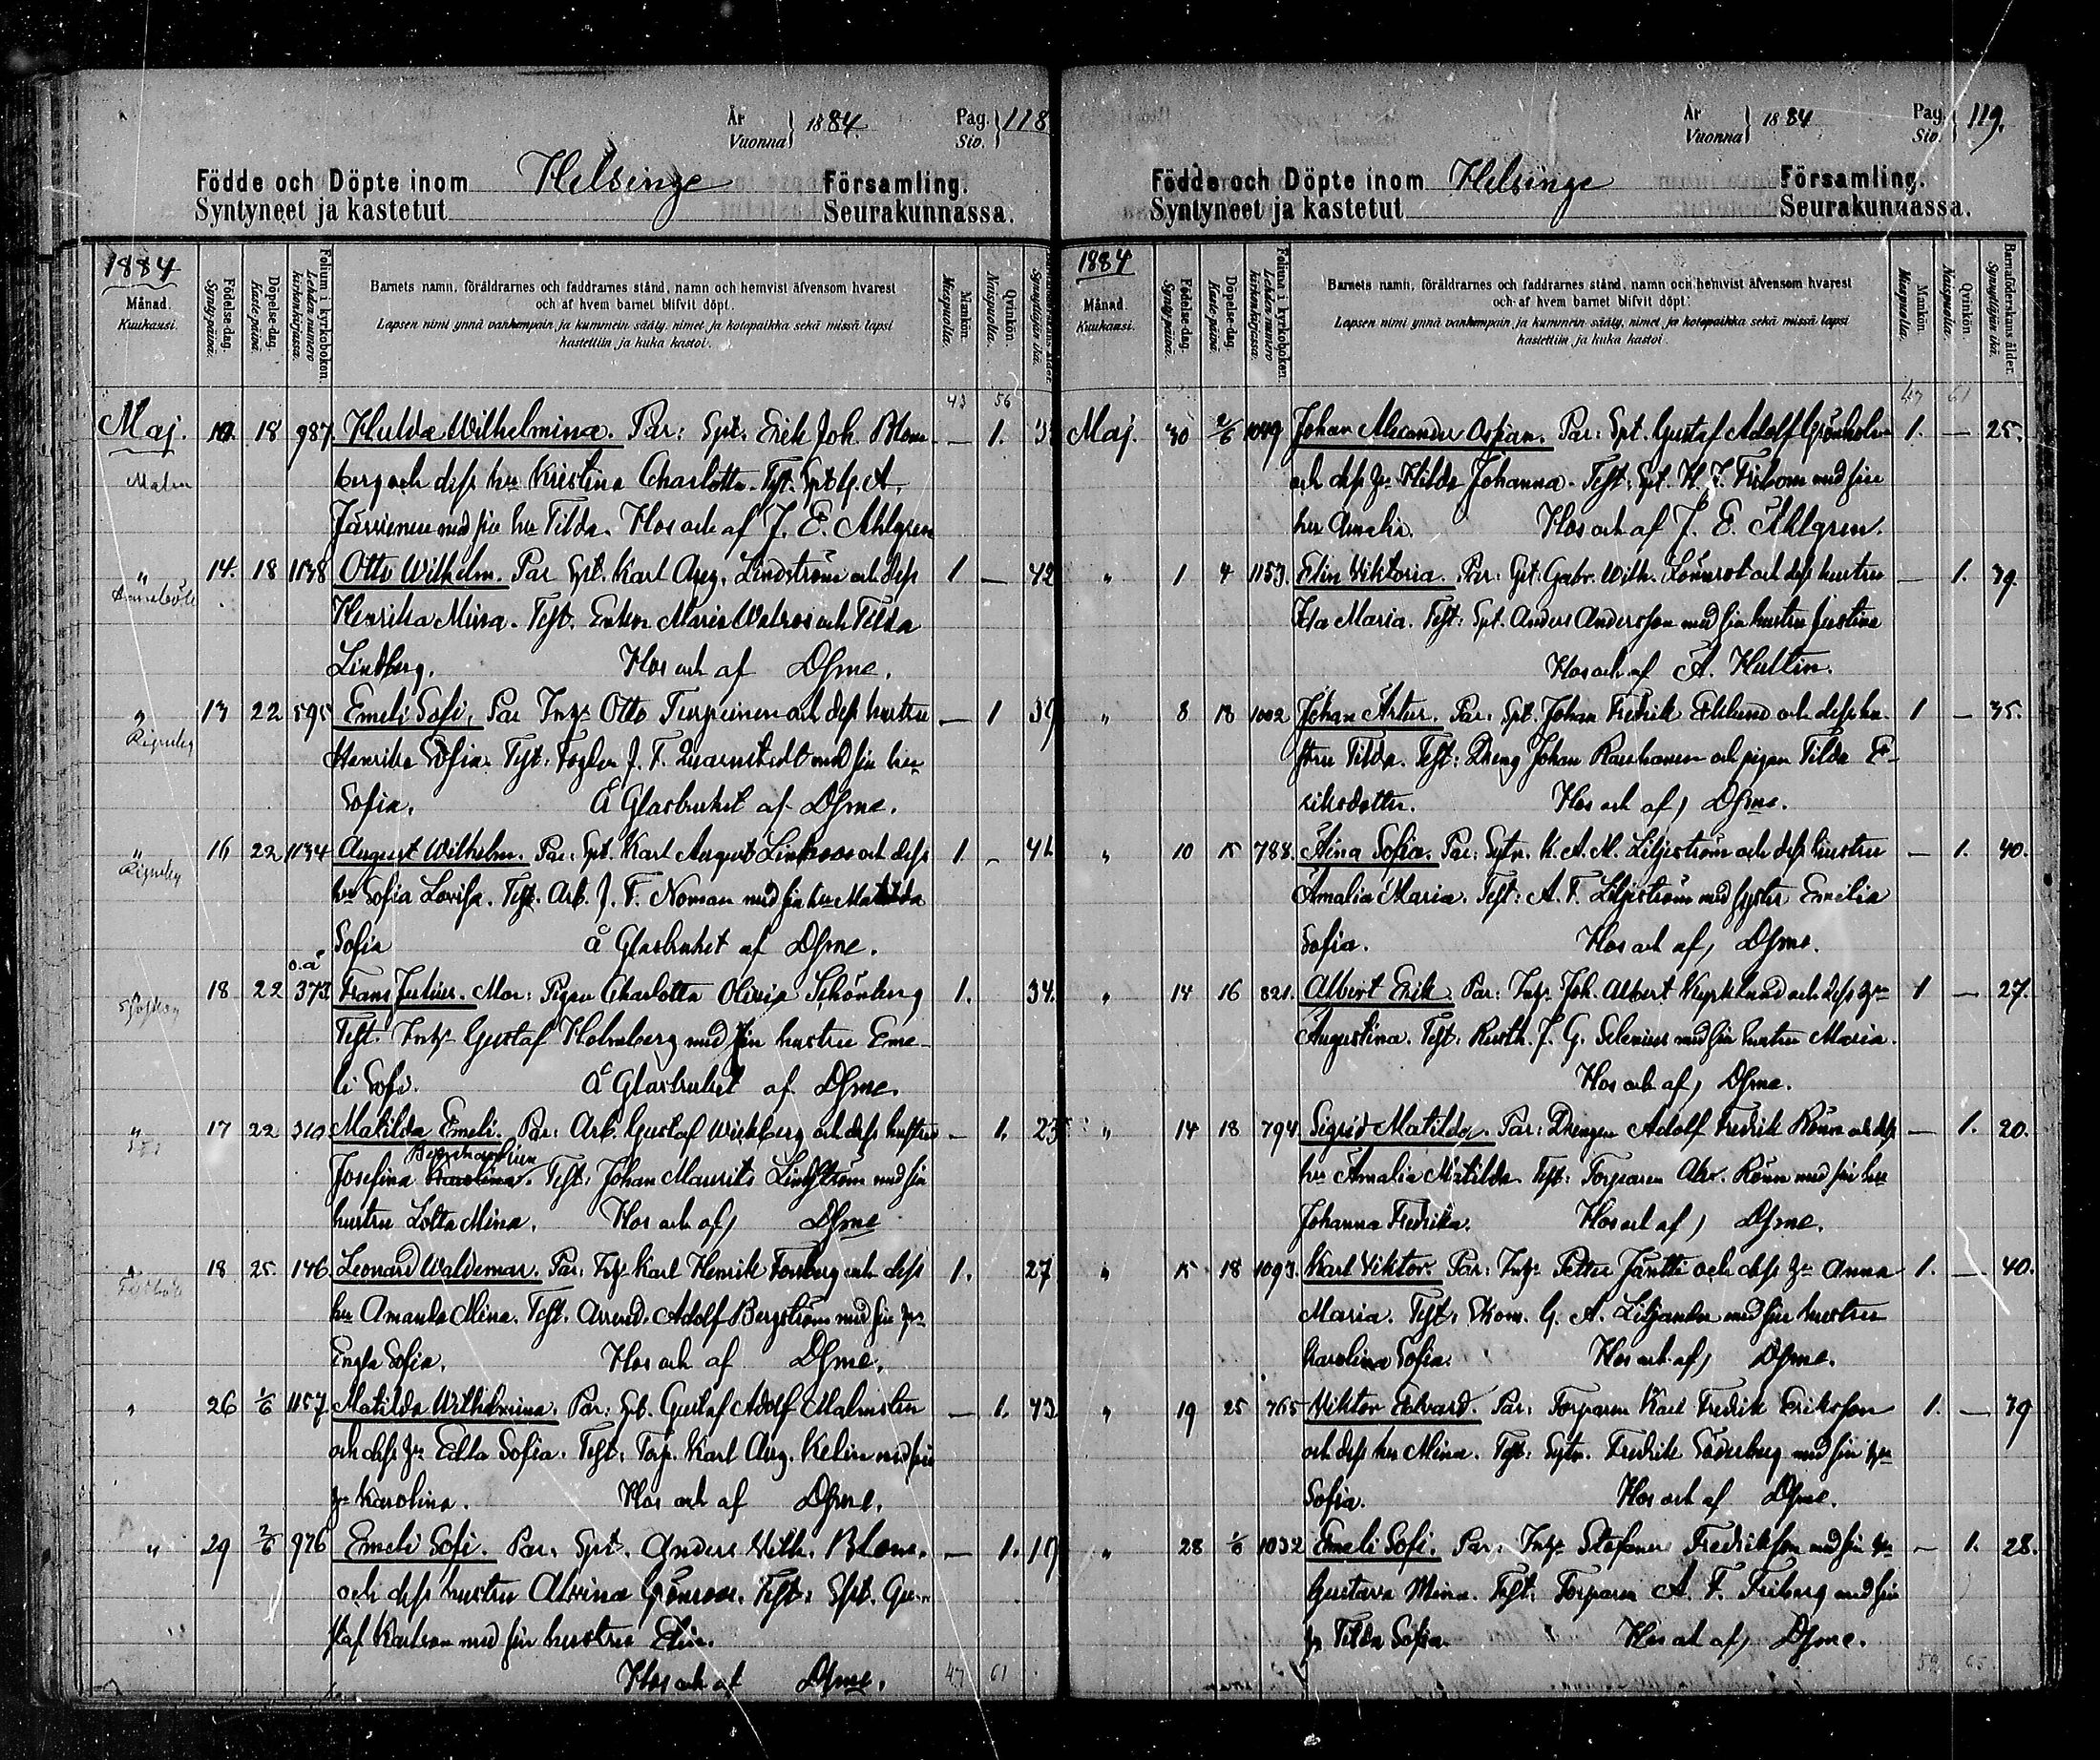 År
Vuonna } 1884.
Pag.
Siv. } 118
Födde och Döpte inom Helsinge Församling.
Syntyneet ja kastetut Seurakunnassa.
1884
Månad.
Kuukausi.
Födelse-dag.
Synty-päivä.
Döpelse-dag.
Kaste-päivä.
Folium i kyrkoboken.
Lehden numero kirkonkirjassa.
Barnets namn, föräldrarnes och faddrarnes stånd, namn och hemvist äfvensom hvarest
och af hvem barnet blifvit döpt.
Lapsen nimi ynnä vanhempain ja kummein sääty, nimet ja kotopaikka sekä missä lapsi
kastettiin ja kuka kastoi.
Mankön.
Miespuolia.
Qvinkön.
Naispuolia.
Synnyttäjän ikä.
43 56
Maj. 18 987 Hulda Wilhelmina. Par: Spt. Erik Joh. Blom- — 1.
Malm berg och dess hu Kristina Charlotta. Test. Spt G. A.
Järvinen med sin hu Tilda. Hos och af J. E. Ahlgren
" 14. 18 1138 Otto Wilhelm. Par Spt. Karl Aug. Lindström och dess 1 — 42
Henrika Mina. Test. Enkan Maria Walros och Tilda
Lindberg. Hos och af Dsme.
" 13 22 595 Emeli Sofi, Par Inhs Otto Turpeinen och dess hustru — 1 39
Henrika Sofia. Test. Fogden J. F. Quarnstedt med sin hu
Sofia. Å Glasbruket af Dsme.
" 16 22 1134 August Wilhelm. Par: Spt. Karl August Lindroos och dess 1. -
hu Sofia Lovisa. Test. Arb. J. F. Noman med sin hu Matilda
Sofia Å Glasbruket af Dsme.
o.ä
18 22 373 Frans Julius. Mor: Pigan Charlotta Olivia Schönberg 1. 34.
Test. Inhs Gustaf Holmberg med sin hustru Eme-
li Sofi. Å Glasbruket af Dsme.
" 17 22 310 Matilda Emeli. Par: Arb. Gustaf Wickberg och dess hustru — 1. 23
Josefina Karolina. Test. Johan Maurits Lindström med sin
hustru Lotta Mina. Hos och af, Dsme
" 18 25. 146 Leonard Waldemar. Par. Inhs Karl Henrik Forsberg och dess 1. 27
hu Amanda Mina. Test. Arrend. Adolf Bergström med sin hu
Engla Sofia. Hos och af Dsme.
" 26 1/6 1157 Matilda Wilhelmina. Par: Spt. Gustaf Adolf Malmsten — 1. 43
och dess hu Edla Sofia. Test: Torp. Karl Aug. Kelin med sin
hu Karolina. Hos och af Dsme.
" 29 2/6 976 Emeli Sofi. Par. Spt. Anders Wilh. Blom. — 1. 19
och dess hustru Alvina Grönroos. Test: Spt. Gu-
staf Karlson med sin hustru Elin.
Hos och af Dsme. 47 61
År
Vuonna } 1884
Pag.
Siv. } 119.
Födde och Döpte inom Helsinge Församling.
Syntyneet ja kastetut Seurakunnassa.
1884
Månad.
Kuukausi.
Födelse-dag.
Synty-päivä.
Döpelse-dag.
Kaste-päivä.
Folium i kyrkoboken.
Lehden numero kirkonkirjassa.
Barnets namn, föräldrarnes och faddrarnes stånd, namn och hemvist äfvensom hvarest
och af hvem barnet blifvit döpt.
Lapsen nimi ynnä vanhempain ja kummein sääty, nimet ja kotopaikka sekä missä lapsi
kastettiin ja kuka kastoi.
Mankön.
Miespuolia.
Qvinkön.
Naispuolia.
Barnaföderskans ålder.
Synnyttäjän ikä.
47 61
Maj. 30 2/6 1049 Johan Alexander Oskar. Par: Spt. Gustaf Adolf Grönholm 1. — 25.
och dess hu Hilda Johanna. Test: Spt. H. J. Fribom med sin
hu Amalia. Hos och af J. E. Ahlgren.
" 1 4 1153. Elin Viktoria. Par: Spt. Gabr. Wilh. Lönnrot och dess hustru — 1. 39.
Ida Maria. Test: Spt. Anders Andersson med sin hustru Justina
Hos och af A. Hultin.
" 8 18 1002 Johan Artur. Par: Spt. Johan Fredrik Eklund och dess hu- 1 — 35.
stru Tilda. Test: Dreng Johan Rauhanen och pigan Tilda E-
riksdotter. Hos och af, Dsme.
" 10 15 788. Aina Sofia. Par: Sytn. K. A. M. Liljeström och dess hustru — 1. 40.
Amalia Maria. Test: A. F. Liljeström med syster Emelia
Sofia. Hos och af, Dsme.
" 14 16 821. Albert Erik. Par: Inhs Joh. Albert Kyrklund och dess hu 1 — 27.
Augustina. Test: Rusth. J. G. Selenius med sin hustru Maria.
Hos och af, Dsme.
" 14 18 794. Sigrid Matilda. Par: Drengen Adolf Fredrik Rönn och dess — 1. 20.
hu Amalia Matilda. Test: Torparen Abr. Rönn med sin hu
Johanna Fredrika. Hos och af, Dsme.
" 15 18 1093. Karl Viktor. Par: Inhs Petter Jäntti och dess hu Anna 1. — 40.
Maria. Test: Skom. G. A. Liljander med sin hustru
Karolina Sofia. Hos och af, Dsme.
" 19 25 765 Viktor Edvard. Par: Torparen Karl Fredrik Eriksson 1. — 39
och dess hu Mina. Test: Sytn. Fredrik Söderberg med sin hu
Sofia. Hos och af Dsme.
" 28 1/6 1032 Emeli Sofi. Par: Inhs Stefanus Fredriksson med sin hu — 1. 28.
Gustava Mina. Test: Torparen A. F. Friberg med sin
hu Tilda Sofia. Hos och af, Dsme.